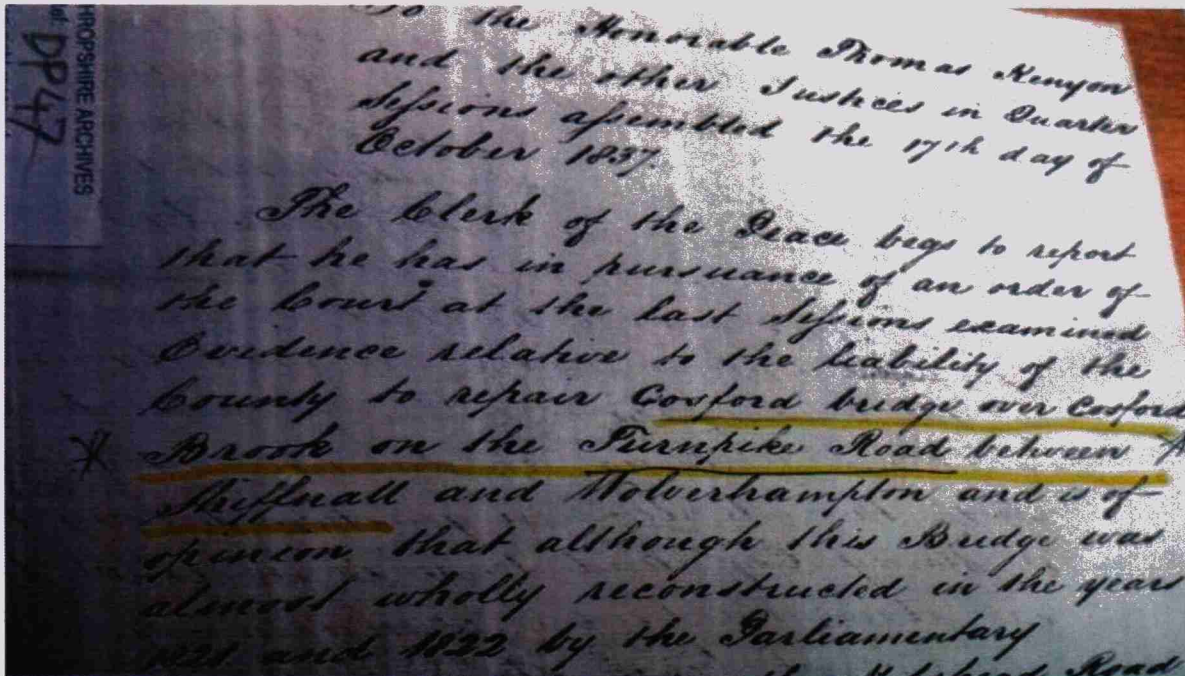 SHROPSHIRE ARCHIVES
DP47
To the Honorable Thomas Kenyon
and the other Justices in Quarter
Sessions assembled the 17th day of
October 1837.
The Clerk of the Peace begs to report
that he has in pursuance of an order of
the Court at the last Sessions examined
Evidence relative to the liability of the
County to repair Cosford bridge over Cosford
Brook on the Turnpike Road between
Shiffnall and Wolverhampton and is of
opinion that although this Bridge was
almost wholly reconstructed in the years
1821 and 1822 by the Parliamentary
Holyhead Road